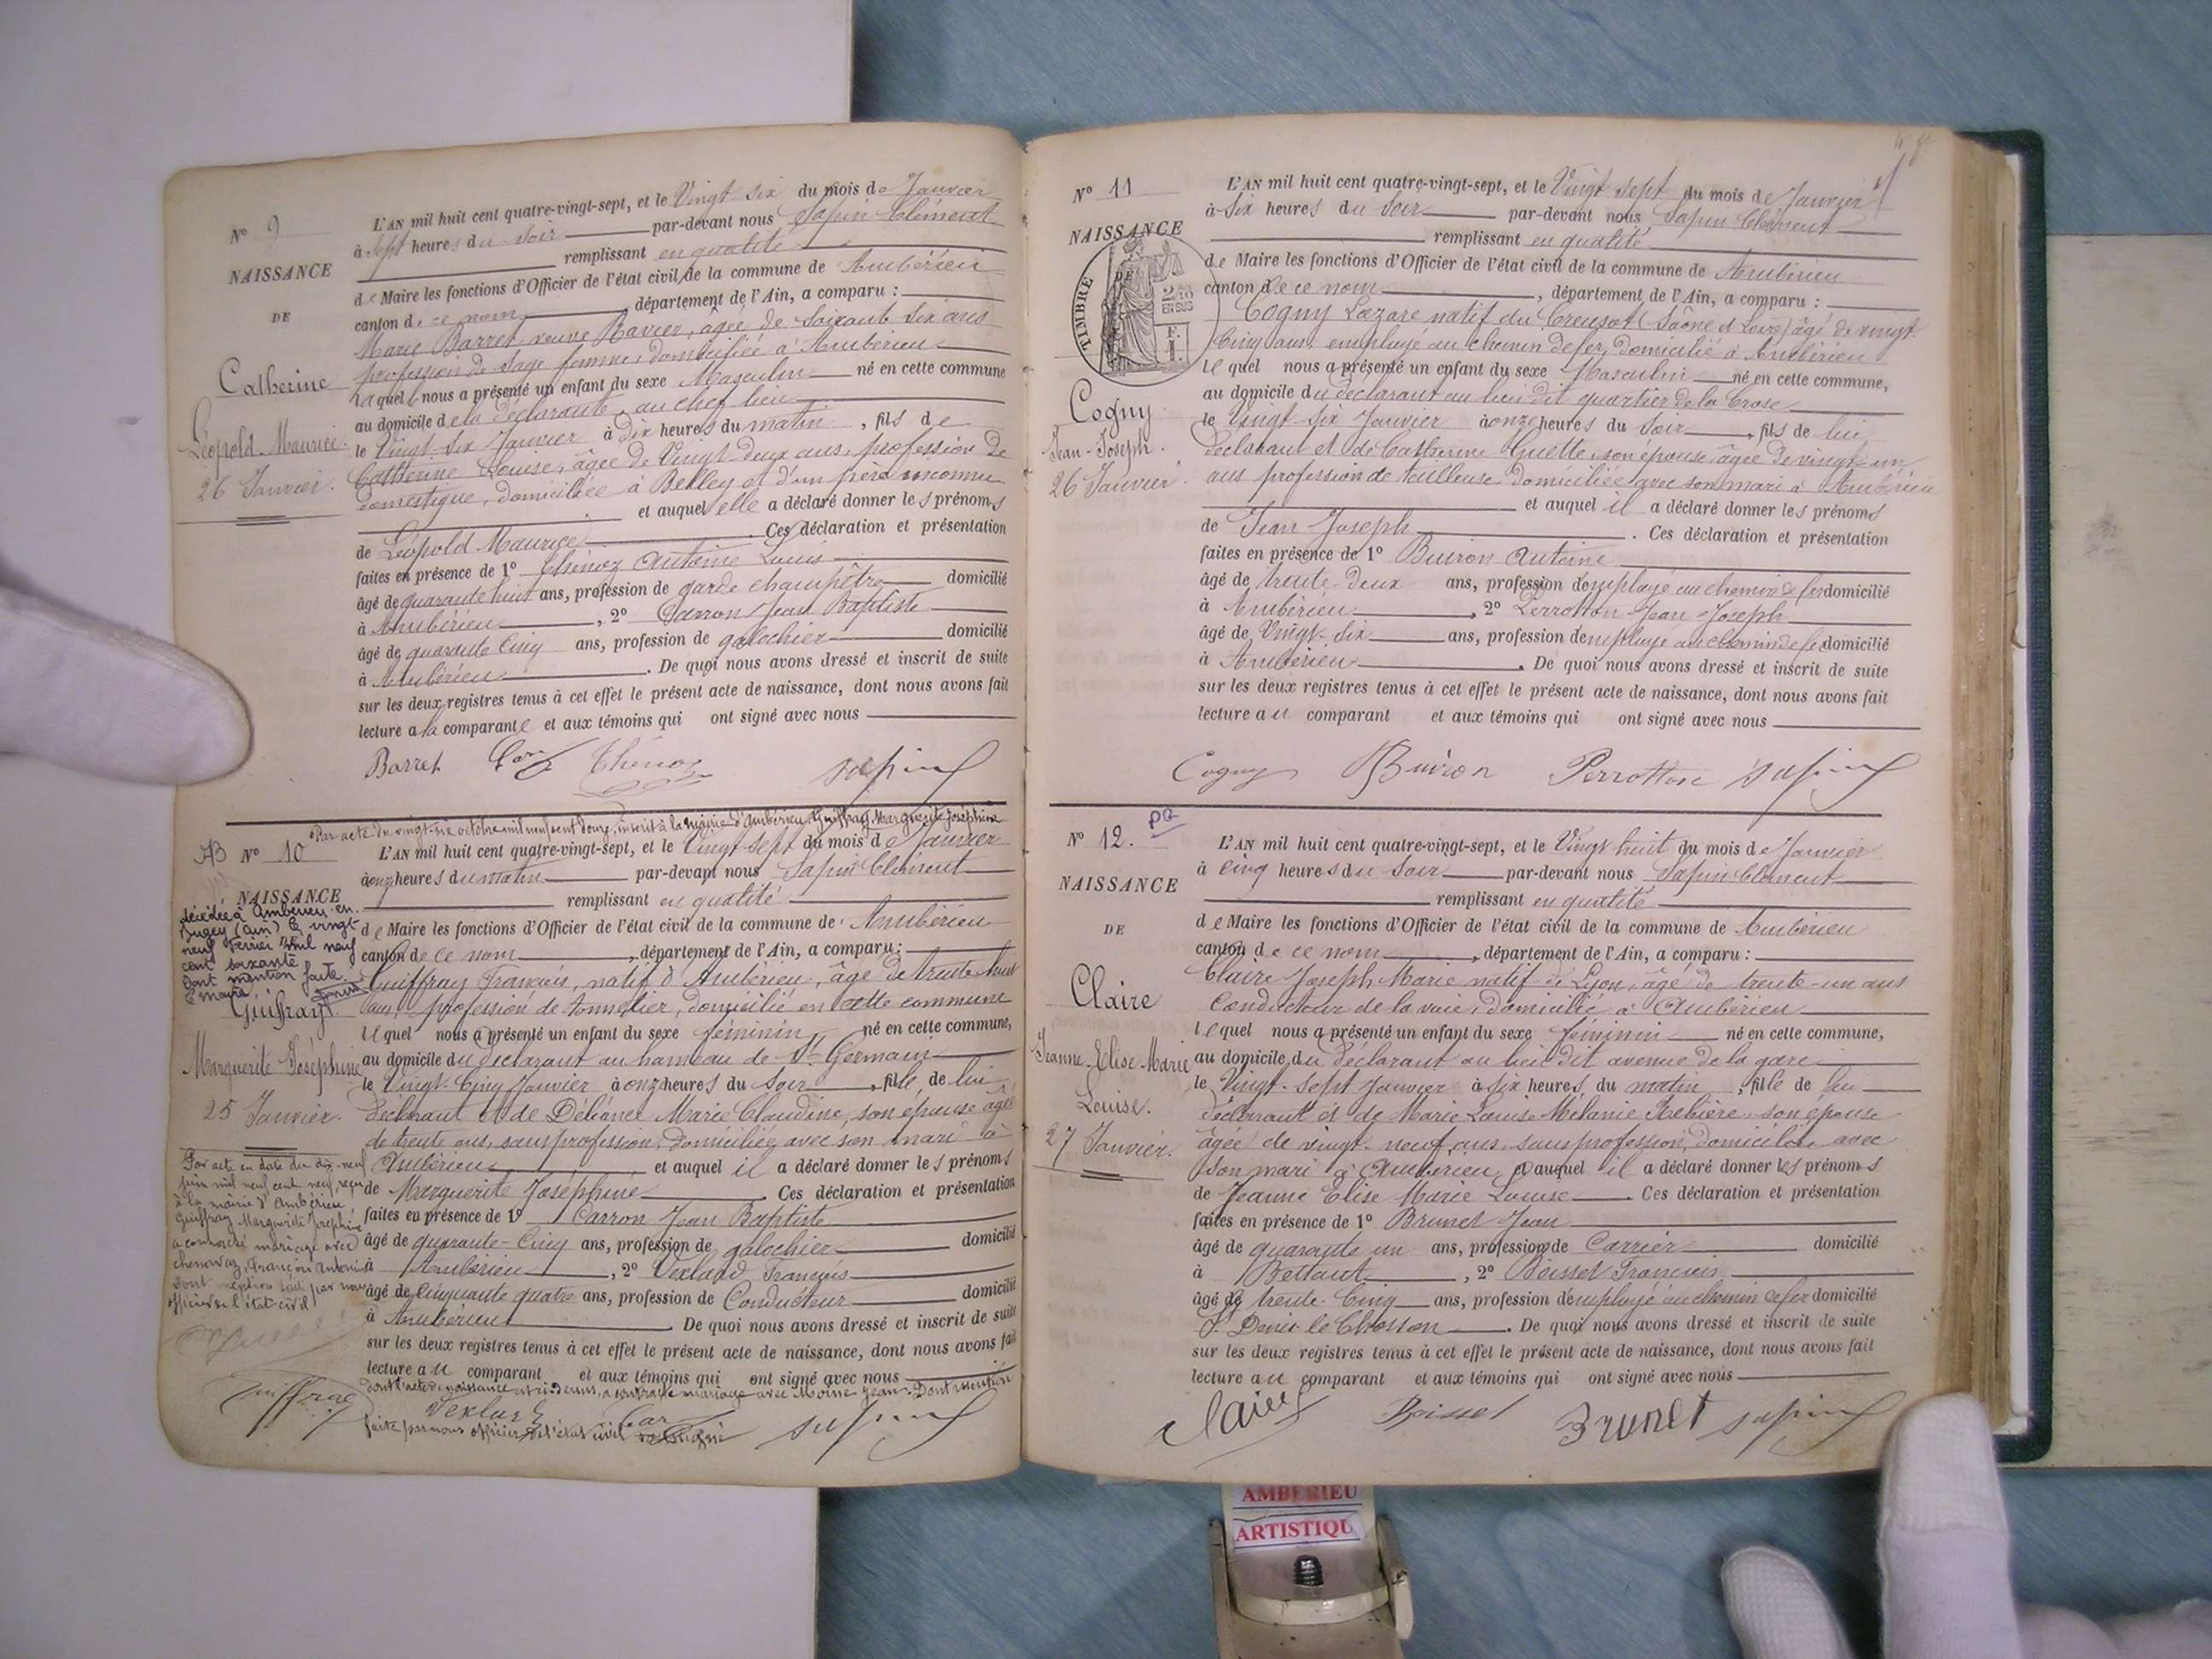 N° 9
NAISSANCE
DE
Catherine
Léopold Maurice
26 Janvier.
L'AN mil huit cent quatre-vingt-sept, et le Vingt six du mois de Janvier
à sept heures du soir par-devant nous Sapin Clément
remplissant en qualité
de Maire les fonctions d'Officier de l'état civil de la commune de Ambérieu
canton de ce nom, département de l'Ain, a comparu :
Marie Barret veuve Ravier, âgée de Soixante six ans
profession de sage femme, domiciliée à Ambérieu
laquelle nous a présenté un enfant du sexe Masculin né en cette commune
au domicile de la déclarante, au chef lieu
le Vingt six Janvier à dix heures du matin, fils de
Catherine Louise, âgée de Vingt deux ans, profession de
domestique, domiciliée à Belley et d'un père inconnu
et auquel elle a déclaré donner les prénoms
de Léopold Maurice. Ces déclaration et présentation
faites en présence de 1° Thénoz Antoine Louis
âgé de quarante huit ans, profession de garde champêtre domicilié
à Ambérieu, 2° Carron Jean Baptiste
âgé de quarante Cinq ans, profession de galochier domicilié
à Ambérieu. De quoi nous avons dressé et inscrit de suite
sur les deux registres tenus à cet effet le présent acte de naissance, dont nous avons fait
lecture a la comparante et aux témoins qui ont signé avec nous
Barret Car Thénoz Sapin
Par acte du vingt-six octobre mil neuf cent douze, inscrit à la mairie d'Ambérieu, Guiffray Marguerite Joséphine
AB N° 10
NAISSANCE
décédée à Ambérieu-en-
Bugey (Ain) le vingt-
neuf Février mil neuf
cent soixante
Dont mention faite.
Le maire,
Guiffray.
Marguerite Joséphine
25 Janvier.
Par acte en date du dix-neuf
juin mil neuf cent neuf, reçu
à la mairie d'Ambérieu
Guiffray Marguerite Joséphine
a contracté mariage avec
Chenavaz, François Antonin
Dont mention faite par nous
officier de l'état-civil
L'AN mil huit cent quatre-vingt-sept, et le Vingt sept du mois de Janvier
à onze heures du matin par-devant nous Sapin Clément
remplissant en qualité
de Maire les fonctions d'Officier de l'état civil de la commune de Ambérieu
canton de ce nom, département de l'Ain, a comparu :
Guiffray François, natif d'Ambérieu, âgé de trente huit
ans, profession de tonnelier, domicilié en cette commune
lequel nous a présenté un enfant du sexe féminin né en cette commune,
au domicile du déclarant au hameau de St Germain
le Vingt Cinq Janvier à onze heures du soir, fille de lui
déclarant et de Déliance Marie Claudine, son épouse âgée
de trente ans, sans profession, domiciliée avec son mari à
Ambérieu et auquel il a déclaré donner les prénoms
de Marguerite Joséphine. Ces déclaration et présentation
faites en présence de 1° Carron Jean Baptiste
âgé de quarante-Cinq ans, profession de galochier domicilié
à Ambérieu, 2° Vexlard François
âgé de Cinquante quatre ans, profession de Conducteur domicilié
à Ambérieu. De quoi nous avons dressé et inscrit de suite
sur les deux registres tenus à cet effet le présent acte de naissance, dont nous avons fait
lecture au comparant et aux témoins qui ont signé avec nous
dont l'acte de naissance est ci-dessus, a contracté mariage avec Moine Jean. Dont mention
Guiffray Vexlard Car Sapin
faite par nous officier de l'état civil soussigné
N° 11
NAISSANCE
TIMBRE
DE
2/10
EN SUS
1 F.
Cogny
Jean-Joseph.
26 Janvier.
L'AN mil huit cent quatre-vingt-sept, et le Vingt sept du mois de Janvier
à Six heures du soir par-devant nous Sapin Clément
remplissant en qualité
de Maire les fonctions d'Officier de l'état civil de la commune de Ambérieu
canton de ce nom, département de l'Ain, a comparu :
Cogny Lazare natif du Creusot (Saône et Loire) âgé de vingt
Cinq ans, employé au chemin de fer, domicilié à Ambérieu
lequel nous a présenté un enfant du sexe Masculin né en cette commune,
au domicile du déclarant au lieu dit quartier de la Crose
le Vingt Six Janvier à onze heures du soir, fils de lui
déclarant et de Catherine Guette, son épouse, âgée de vingt un
ans profession de tailleuse domiciliée avec son mari à Ambérieu
et auquel il a déclaré donner les prénoms
de Jean Joseph. Ces déclaration et présentation
faites en présence de 1° Buiron Antoine
âgé de trente-deux ans, profession d'employé au chemin de fer domicilié
à Ambérieu, 2° Perrotton Jean Joseph
âgé de Vingt-Six ans, profession d'employé au chemin de fer domicilié
à Ambérieu. De quoi nous avons dressé et inscrit de suite
sur les deux registres tenus à cet effet le présent acte de naissance, dont nous avons fait
lecture au comparant et aux témoins qui ont signé avec nous
Cogny Buiron Perrotton Sapin
N° 12.
NAISSANCE
DE
Claire
Jeanne-Elise-Marie
Louise.
27 Janvier.
L'AN mil huit cent quatre-vingt-sept, et le Vingt huit du mois de Janvier
à cinq heures du soir par-devant nous Sapin Clément
remplissant en qualité
de Maire les fonctions d'Officier de l'état civil de la commune de Ambérieu
canton de ce nom, département de l'Ain, a comparu :
Claire Joseph Marie natif de Lyon, âgé de trente-un ans
Conducteur de la voie, domicilié à Ambérieu
lequel nous a présenté un enfant du sexe féminin né en cette commune,
au domicile du déclarant au lieu dit avenue de la gare
le Vingt-sept Janvier à six heures du matin, fille de lui
déclarant et de Marie Louise Mélanie Rebière, son épouse
âgée de vingt-neuf ans, sans profession, domiciliée avec
son mari à Ambérieu et auquel il a déclaré donner les prénoms
de Jeanne Elise Marie Louise. Ces déclaration et présentation
faites en présence de 1° Brunet Jean
âgé de quarante un ans, profession de Carrier domicilié
à Bettant, 2° Boisset François
âgé de trente-Cinq ans, profession d'employé au chemin de fer domicilié
St Denis-le Chosson. De quoi nous avons dressé et inscrit de suite
sur les deux registres tenus à cet effet le présent acte de naissance, dont nous avons fait
lecture au comparant et aux témoins qui ont signé avec nous
Claire Boisset Brunet Sapin
AMBERIEU
ARTISTIQU